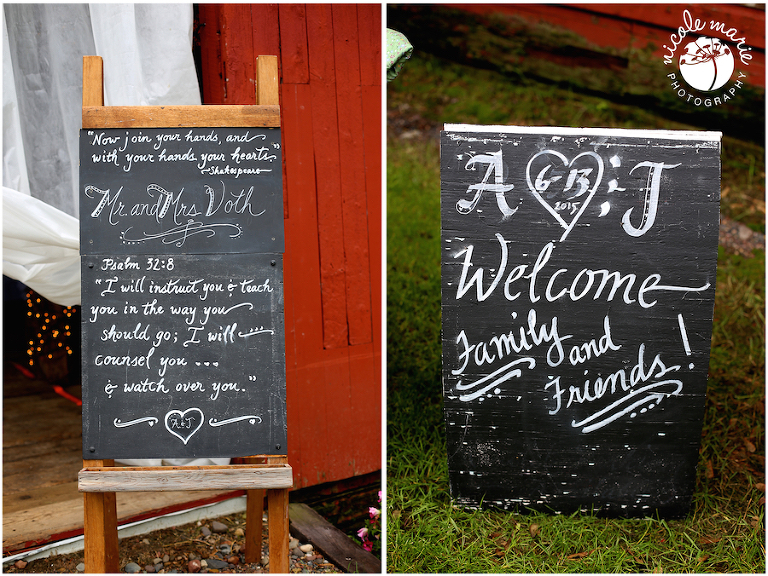 "Now join your hands, and
with your hands your hearts."
~Shakespeare
Mr. and Mrs. Voth
Psalm 32:8
"I will instruct you & teach
you in the way you
should go; I will
counsel you ...
& watch over you."
A&J
A & J
6-13
2015
Welcome
Family
and
Friends!
nicole marie
PHOTOGRAPHY